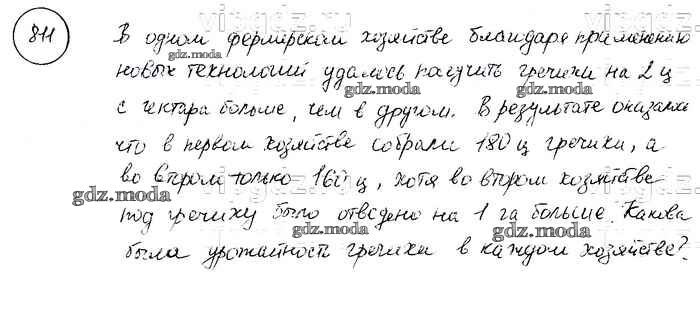 811
В одном фермерском хозяйстве благодаря применению
новых технологий удалось получить гречихи на 2 ц
с гектара больше, чем в другом. В результате оказалось
что в первом хозяйстве собрали 180 ц гречихи, а
во втором только 160 ц, хотя во втором хозяйстве
под гречиху было отведено на 1 га больше. Какова
была урожайность гречихи в каждом хозяйстве?
gdz.moda
gdz.moda
gdz.moda
gdz.moda
gdz.moda
gdz.moda